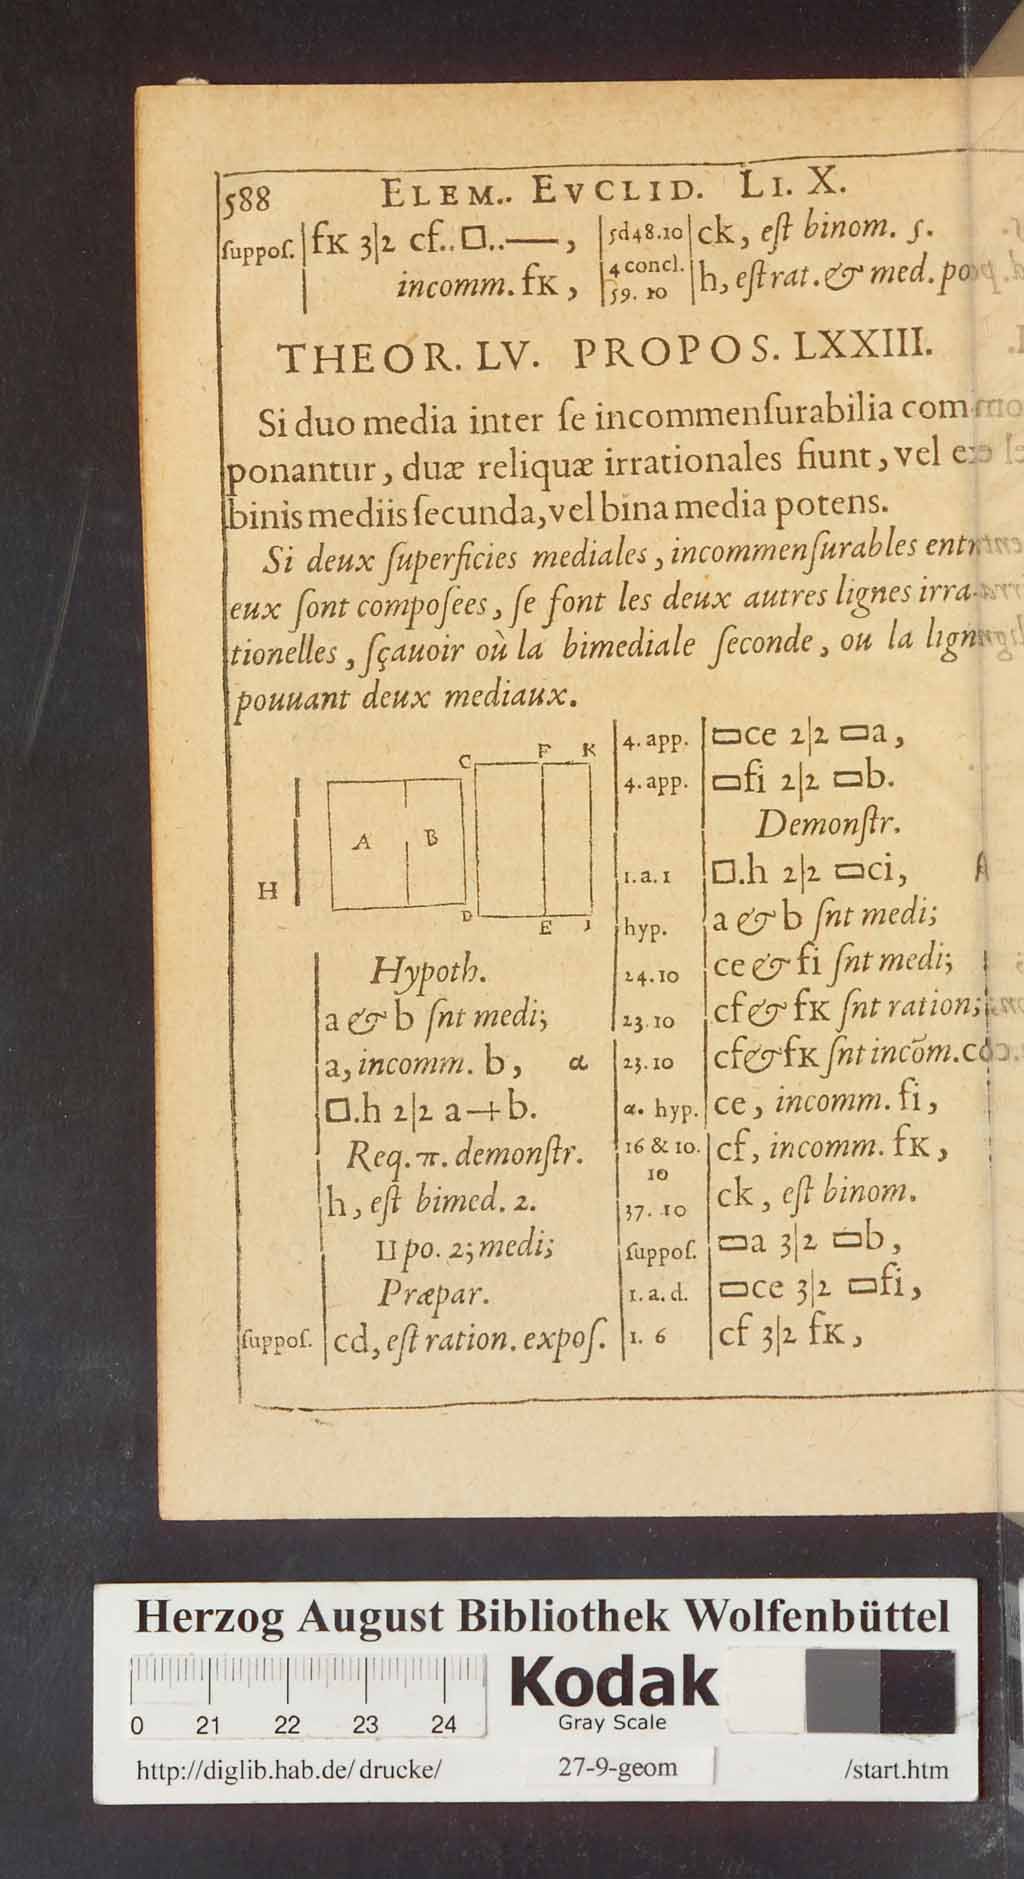 588 ELEM.. EVCLID. LI. X.
ſuppoſ. fK 3|2 cf..□..—,
incomm. fK,
5d48.10 ck, eſt binom. 5.
4 concl. 59. 10 h, eſt rat. & med. po
THEOR. LV. PROPOS. LXXIII.
Si duo media inter ſe incommenſurabilia com
ponantur, duæ reliquæ irrationales fiunt, vel ex
binis mediis ſecunda, vel bina media potens.
Si deux ſuperficies mediales, incommenſurables entr
eux ſont compoſées, ſe font les deux autres lignes irra-
tionelles, ſçauoir où la bimediale ſeconde, ou la ligne
pouuant deux mediaux.
C F K
A B
H
D E I
Hypoth.
a & b ſnt medi;
a, incomm. b, α
□.h 2|2 a+b.
Req. π. demonſtr.
h, eſt bimed. 2.
II po. 2; medi;
Præpar.
ſuppoſ. cd, eſt ration. expoſ.
4. app. ▭ce 2|2 ▭a,
4. app. ▭fi 2|2 ▭b.
Demonſtr.
1.a.1 □.h 2|2 ▭ci,
hyp. a & b ſnt medi;
24.10 ce & fi ſnt medi;
23.10 cf & fK ſnt ration;
23.10 cf & fK ſnt incõm. cd
α. hyp. ce, incomm. fi,
16 & 10. 10 cf, incomm. fK,
37. 10 ck, eſt binom.
ſuppoſ. ▭a 3|2 ▭b,
1. a. d. ▭ce 3|2 ▭fi,
1. 6 cf 3|2 fK,
Herzog August Bibliothek Wolfenbüttel
0 21 22 23 24
Kodak
Gray Scale
http://diglib.hab.de/drucke/ 27-9-geom /start.htm